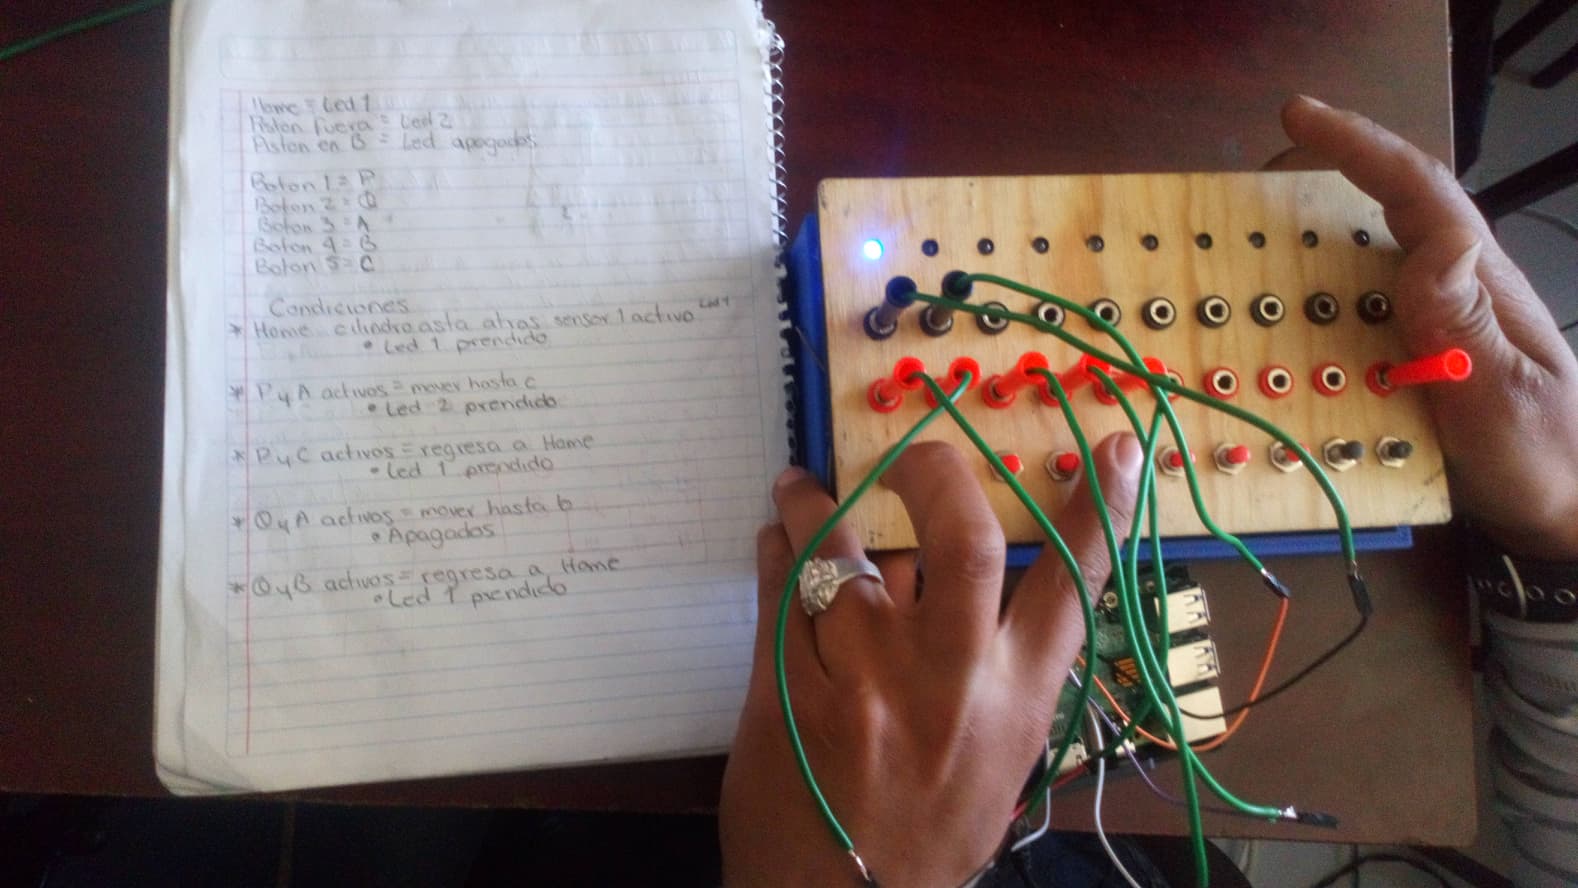 Home = Led 1
Piston fuera = Led 2
Piston en B = Led apagados
Boton 1 = P
Boton 2 = Q
Boton 3 = A
Boton 4 = B
Boton 5 = C
Condiciones
* Home cilindro asta atras sensor 1 activo Led 1
• Led 1 prendido
* P y A activos = mover hasta c
• Led 2 prendido
* P y C activos = regresa a Home
• Led 1 prendido
* Q y A activos = mover hasta b
• Apagados
* Q y B activos = regresa a Home
• Led 1 prendido